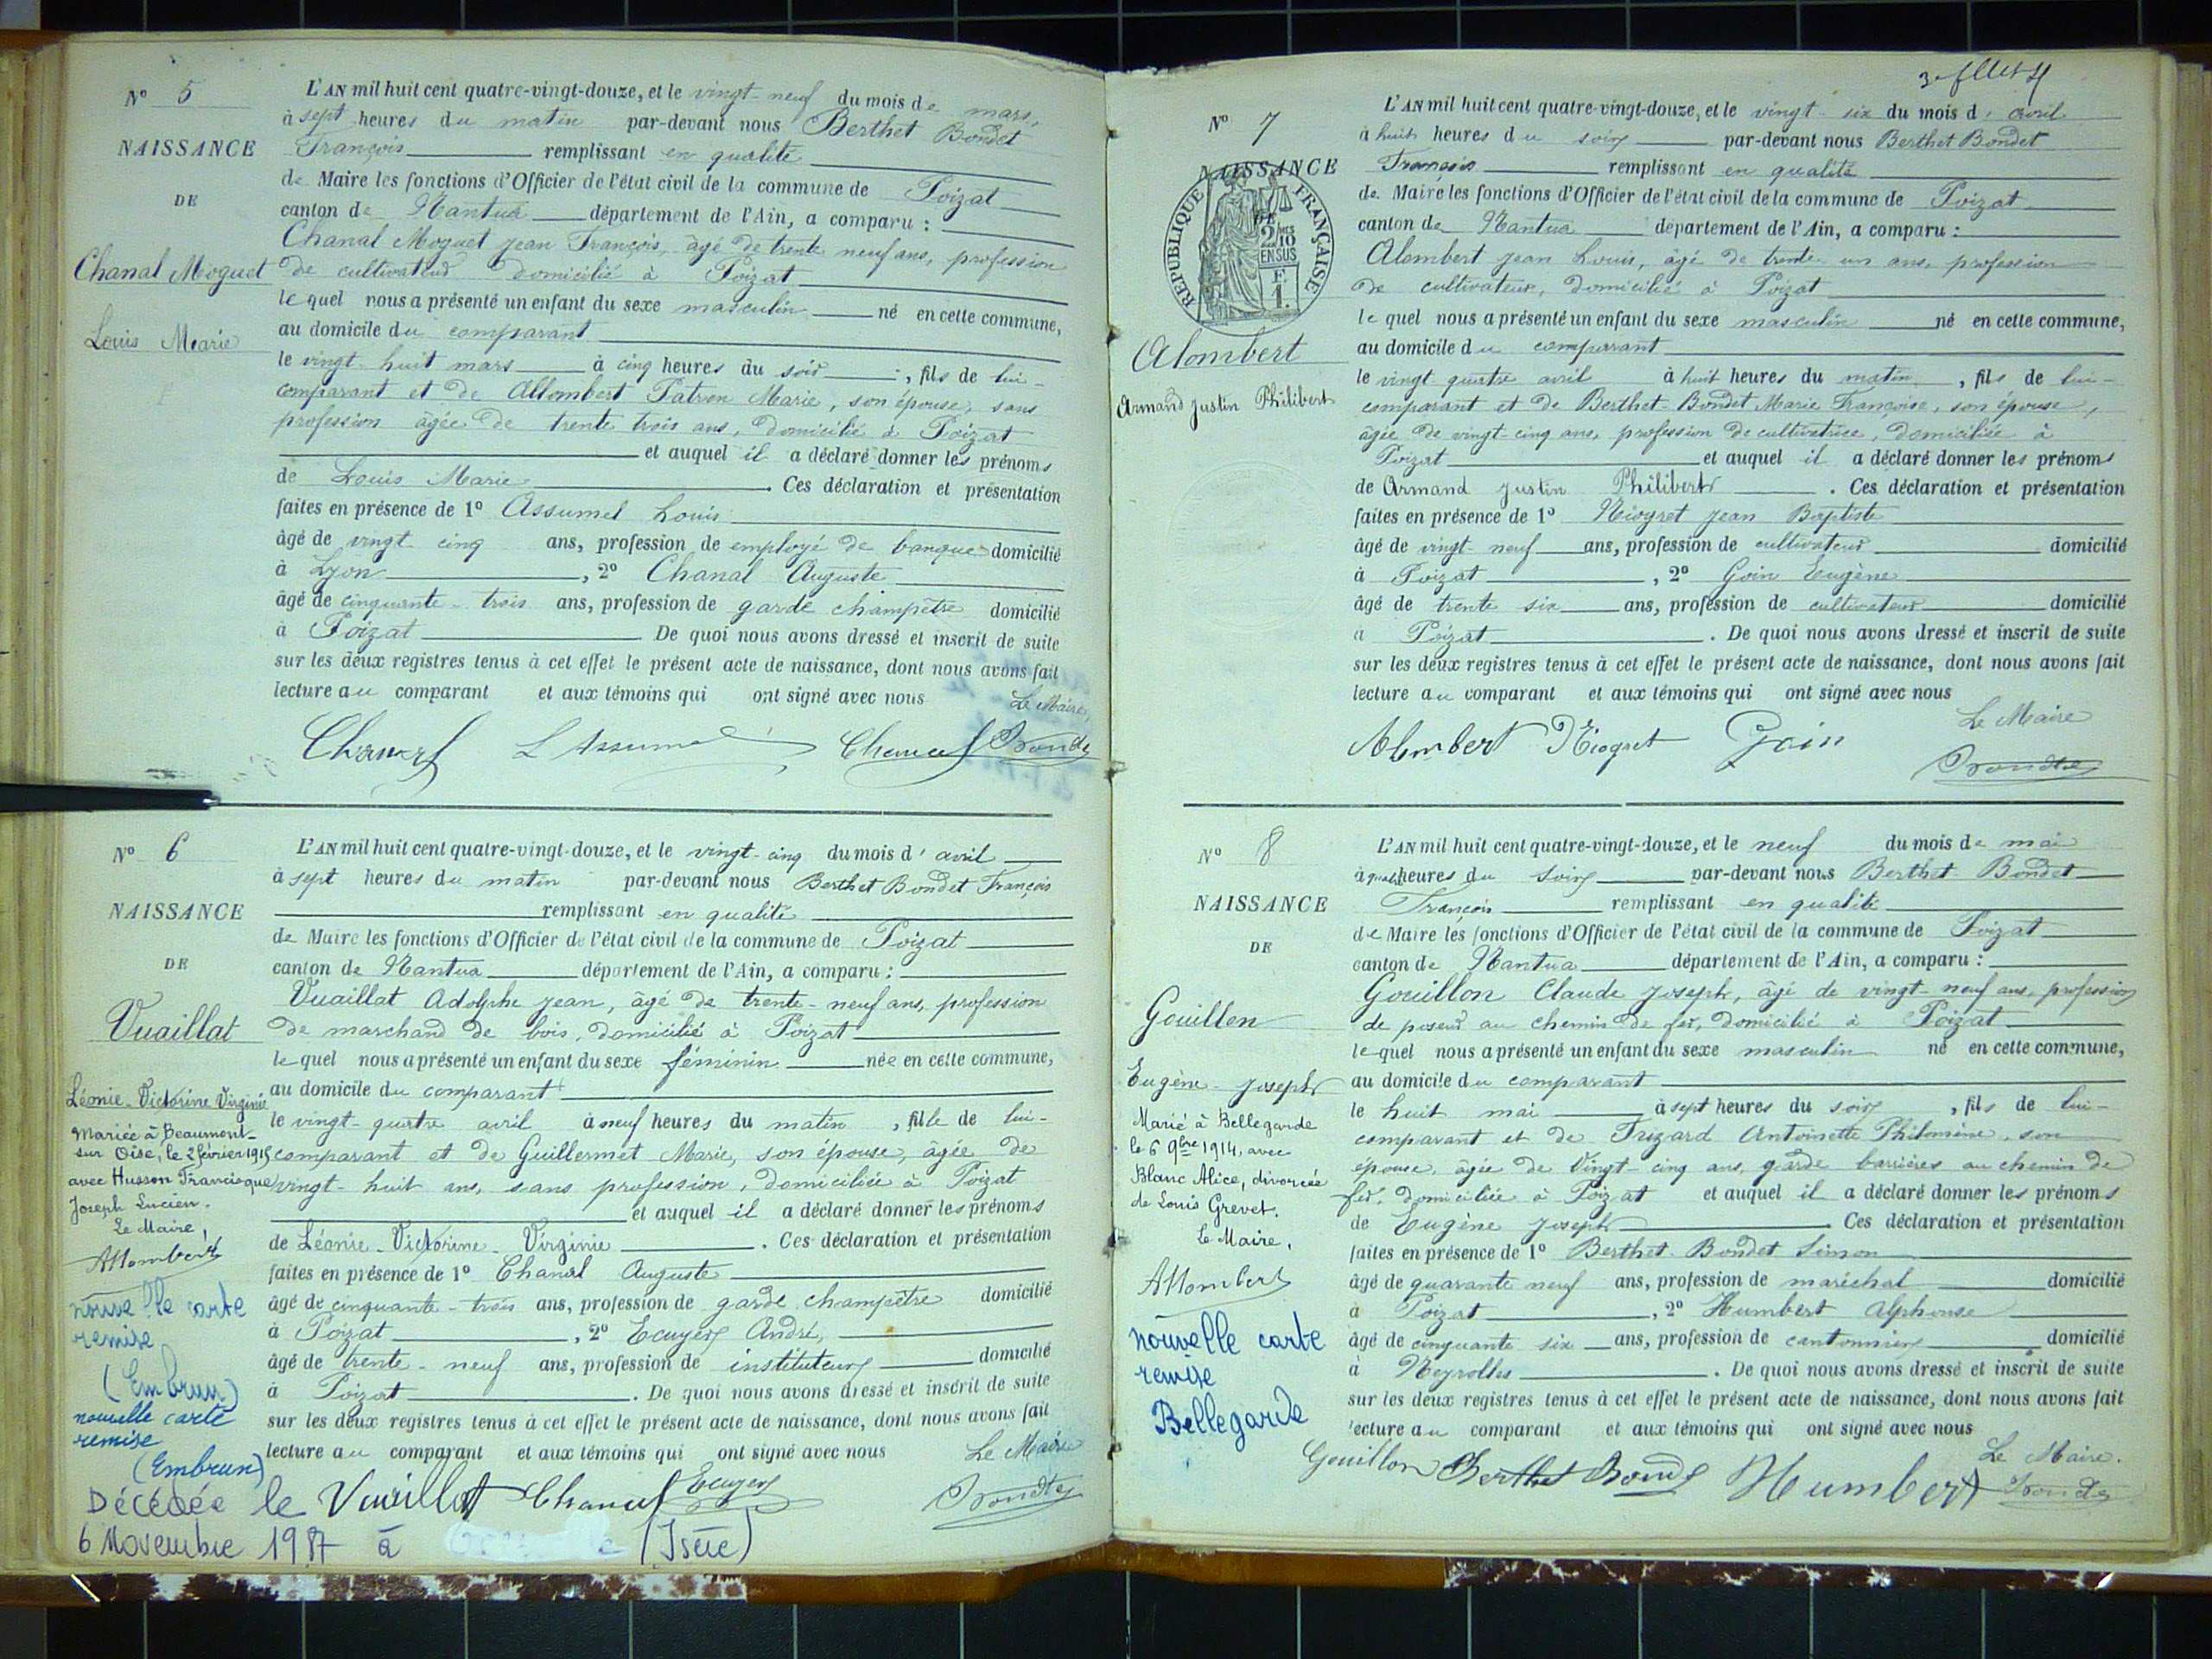 N° 5
NAISSANCE
DE
Chanal Moguet
Louis Marie
L'AN mil huit cent quatre-vingt-douze, et le vingt-neuf du mois de mars,
à sept heures du matin par-devant nous Berthet Bondet
François remplissant en qualité
de Maire les fonctions d'Officier de l'état civil de la commune de Poizat
canton de Nantua département de l'Ain, a comparu :
Chanal Moguet Jean François, âgé de trente neuf ans, profession
de cultivateur domicilié à Poizat
le quel nous a présenté un enfant du sexe masculin né en cette commune,
au domicile du comparant
le vingt-huit mars à cinq heures du soir, fils de lui-
comparant et de Allombert Patron Marie, son épouse, sans
profession âgée de trente trois ans, domicilié à Poizat
et auquel il a déclaré donner les prénoms
de Louis Marie. Ces déclaration et présentation
faites en présence de 1° Assumel Louis
âgé de vingt cinq ans, profession de employé de banque domicilié
à Lyon, 2° Chanal Auguste
âgé de cinquante-trois ans, profession de garde champêtre domicilié
à Poizat. De quoi nous avons dressé et inscrit de suite
sur les deux registres tenus à cet effet le présent acte de naissance, dont nous avons fait
lecture au comparant et aux témoins qui ont signé avec nous
Le Maire,
Chanal L Assumel Chanal Bondet
N° 6
NAISSANCE
DE
Vuaillat
Léonie-Victorine Virginie
Mariée à Beaumont-
sur Oise, le 2 février 1915
avec Husson Francisque
Joseph Lucien.
Le Maire,
Allombert
nouvelle carte
remise
(Embrun)
nouvelle carte
remise
(Embrun)
Décédée le
6 Novembre 1987 à (Isère)
L'AN mil huit cent quatre-vingt-douze, et le vingt-cinq du mois d'avril
à sept heures du matin par-devant nous Berthet Bondet François
remplissant en qualité
de Maire les fonctions d'Officier de l'état civil de la commune de Poizat
canton de Nantua département de l'Ain, a comparu :
Vuaillat Adolphe Jean, âgé de trente-neuf ans, profession
de marchand de bois, domicilié à Poizat
le quel nous a présenté un enfant du sexe féminin née en cette commune,
au domicile du comparant
le vingt-quatre avril à neuf heures du matin, fille de lui-
comparant et de Guillermet Marie, son épouse, âgée de
vingt-huit ans, sans profession, domiciliée à Poizat
et auquel il a déclaré donner les prénoms
de Léonie-Victorine-Virginie. Ces déclaration et présentation
faites en présence de 1° Chanal Auguste
âgé de cinquante-trois ans, profession de garde champêtre domicilié
à Poizat, 2° Ecuyer André,
âgé de trente-neuf ans, profession de instituteur domicilié
à Poizat. De quoi nous avons dressé et inscrit de suite
sur les deux registres tenus à cet effet le présent acte de naissance, dont nous avons fait
lecture au comparant et aux témoins qui ont signé avec nous
Le Maire
Vuaillat Chanal Ecuyer Bondet
N° 7
NAISSANCE
DE
RÉPUBLIQUE FRANÇAISE
2/10 EN SUS
F 1.
Alombert
Armand Justin Philibert
L'AN mil huit cent quatre-vingt-douze, et le vingt-six du mois d'avril
à huit heures du soir par-devant nous Berthet Bondet
François remplissant en qualité
de Maire les fonctions d'Officier de l'état civil de la commune de Poizat
canton de Nantua département de l'Ain, a comparu :
Alombert Jean Louis, âgé de trente un ans, profession
de cultivateur, domicilié à Poizat
le quel nous a présenté un enfant du sexe masculin né en cette commune,
au domicile du comparant
le vingt quatre avril à huit heures du matin, fils de lui-
comparant et de Berthet-Bondet Marie Françoise, son épouse,
âgée de vingt-cinq ans, profession de cultivatrice, domiciliée à
Poizat et auquel il a déclaré donner les prénoms
de Armand Justin Philibert. Ces déclaration et présentation
faites en présence de 1° Niogret Jean Baptiste
âgé de vingt-neuf ans, profession de cultivateur domicilié
à Poizat, 2° Goin Eugène
âgé de trente six ans, profession de cultivateur domicilié
à Poizat. De quoi nous avons dressé et inscrit de suite
sur les deux registres tenus à cet effet le présent acte de naissance, dont nous avons fait
lecture au comparant et aux témoins qui ont signé avec nous
Le Maire
Alombert Niogret Goin Bondet
N° 8
NAISSANCE
DE
Gouillon
Eugène-Joseph
Marié à Bellegarde
le 6 9bre 1914, avec
Blanc Alice, divorcée
de Louis Grevet.
Le Maire,
Allombert
nouvelle carte
remise
Bellegarde
L'AN mil huit cent quatre-vingt-douze, et le neuf du mois de mai
à heures du soir par-devant nous Berthet Bondet
François remplissant en qualité
de Maire les fonctions d'Officier de l'état civil de la commune de Poizat
canton de Nantua département de l'Ain, a comparu :
Gouillon Claude Joseph, âgé de vingt-neuf ans, profession
de poseur au chemin de fer, domicilié à Poizat
le quel nous a présenté un enfant du sexe masculin né en cette commune,
au domicile du comparant
le huit mai à sept heures du soir, fils de lui-
comparant et de Frizard Antoinette Philomène, son
épouse, âgée de Vingt-cinq ans, garde barrières au chemin de
fer, domiciliée à Poizat et auquel il a déclaré donner les prénoms
de Eugène Joseph. Ces déclaration et présentation
faites en présence de 1° Berthet-Bondet Simon
âgé de quarante neuf ans, profession de maréchal domicilié
à Poizat, 2° Humbert Alphonse
âgé de cinquante six ans, profession de cantonnier domicilié
à Neyrolles. De quoi nous avons dressé et inscrit de suite
sur les deux registres tenus à cet effet le présent acte de naissance, dont nous avons fait
lecture au comparant et aux témoins qui ont signé avec nous
Le Maire.
Gouillon Berthet Bondet Humbert Bondet